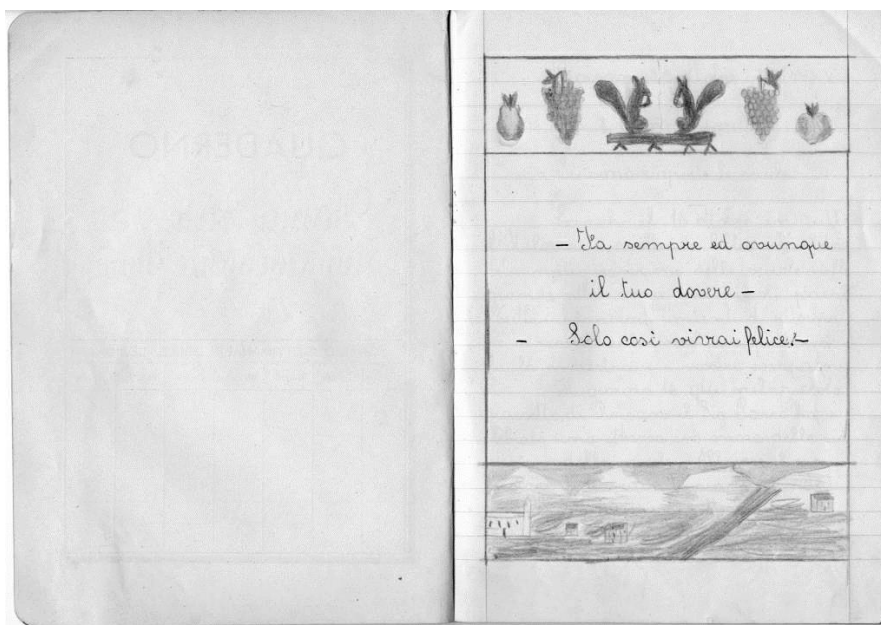 QUADERNO
– Fa sempre ed ovunque
il tuo dovere –
– Solo così vivrai felice.–